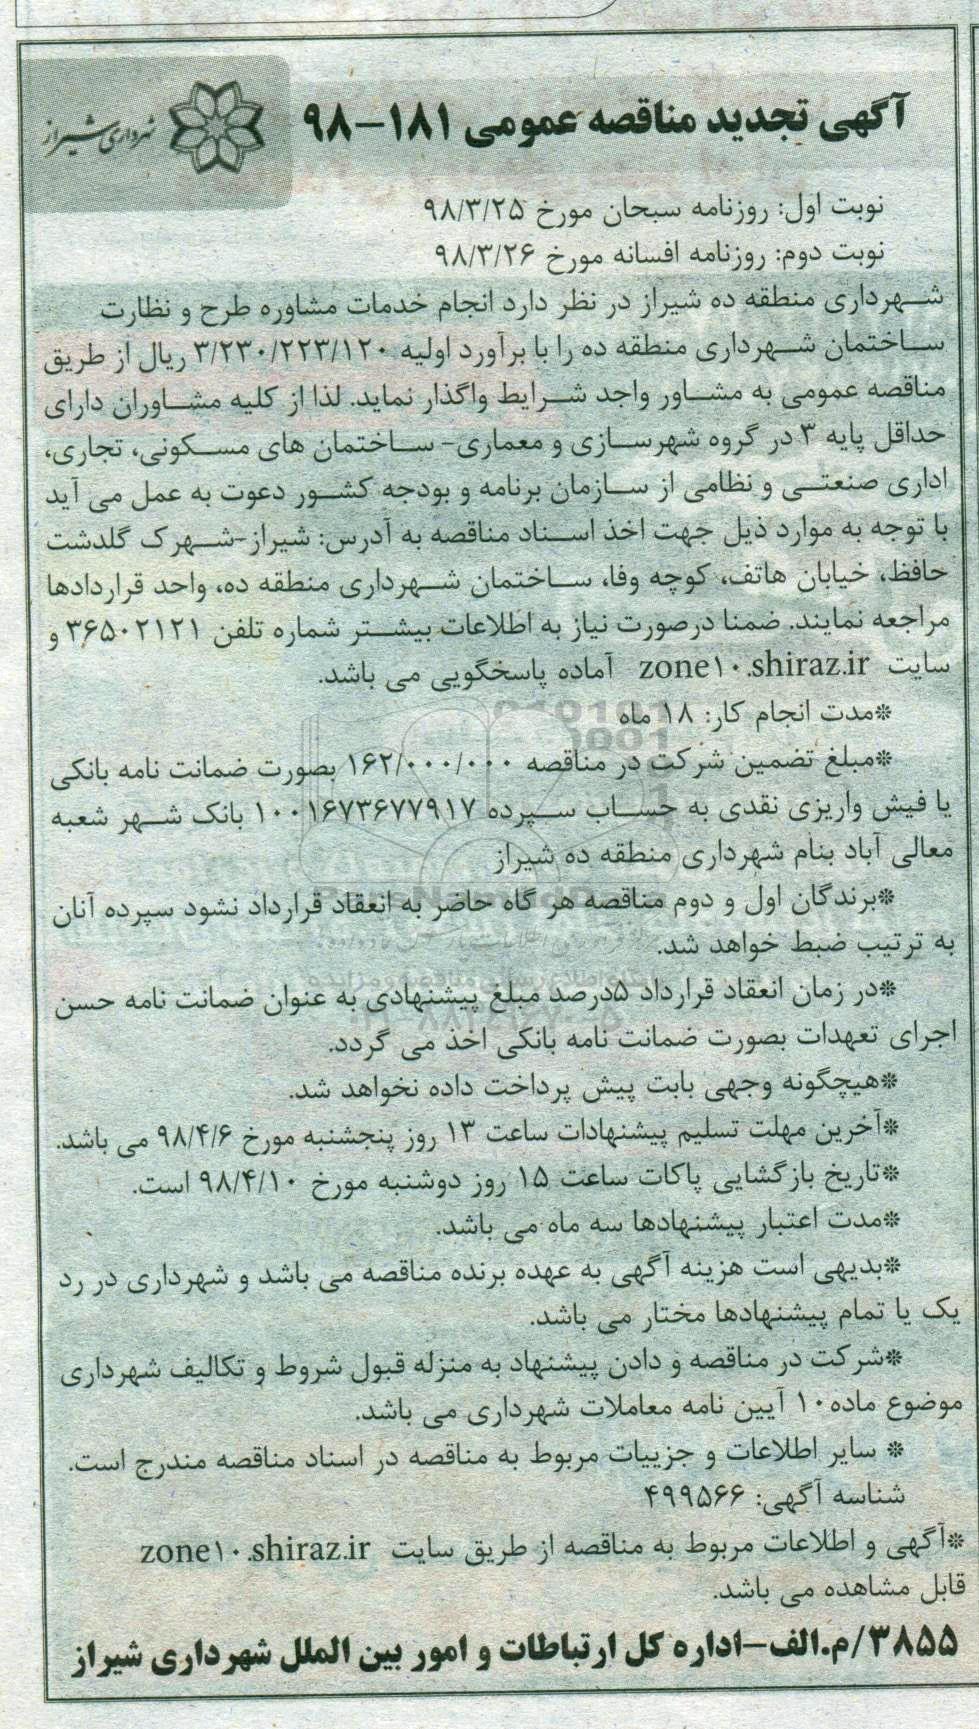 آگهی تجدید مناقصه عمومی ۱۸۱-۹۸
شهرداری شیراز
نوبت اول: روزنامه سبحان مورخ ۹۸/۳/۲۵
نوبت دوم: روزنامه افسانه مورخ ۹۸/۳/۲۶
شهرداری منطقه ده شیراز در نظر دارد انجام خدمات مشاوره طرح و نظارت
ساختمان شهرداری منطقه ده را با برآورد اولیه ۳/۲۳۰/۲۲۳/۱۲۰ ریال از طریق
مناقصه عمومی به مشاور واجد شرایط واگذار نماید. لذا از کلیه مشاوران دارای
حداقل پایه ۳ در گروه شهرسازی و معماری- ساختمان های مسکونی، تجاری،
اداری صنعتی و نظامی از سازمان برنامه و بودجه کشور دعوت به عمل می آید
با توجه به موارد ذیل جهت اخذ اسناد مناقصه به آدرس: شیراز-شهرک گلدشت
حافظ، خیابان هاتف، کوچه وفا، ساختمان شهرداری منطقه ده، واحد قراردادها
مراجعه نمایند. ضمنا درصورت نیاز به اطلاعات بیشتر شماره تلفن ۳۶۵۰۲۱۲۱ و
سایت zone۱۰.shiraz.ir آماده پاسخگویی می باشد.
*مدت انجام کار: ۱۸ ماه
*مبلغ تضمین شرکت در مناقصه ۱۶۲/۰۰۰/۰۰۰ بصورت ضمانت نامه بانکی
یا فیش واریزی نقدی به حساب سپرده ۱۰۰۱۶۷۳۶۷۷۹۱۷ بانک شهر شعبه
معالی آباد بنام شهرداری منطقه ده شیراز
*برندگان اول و دوم مناقصه هر گاه حاضر به انعقاد قرارداد نشود سپرده آنان
به ترتیب ضبط خواهد شد.
*در زمان انعقاد قرارداد ۵درصد مبلغ پیشنهادی به عنوان ضمانت نامه حسن
اجرای تعهدات بصورت ضمانت نامه بانکی اخذ می گردد.
*هیچگونه وجهی بابت پیش پرداخت داده نخواهد شد.
*آخرین مهلت تسلیم پیشنهادات ساعت ۱۳ روز پنجشنبه مورخ ۹۸/۴/۶ می باشد.
*تاریخ بازگشایی پاکات ساعت ۱۵ روز دوشنبه مورخ ۹۸/۴/۱۰ است.
*مدت اعتبار پیشنهادها سه ماه می باشد.
*بدیهی است هزینه آگهی به عهده برنده مناقصه می باشد و شهرداری در رد
یک یا تمام پیشنهادها مختار می باشد.
*شرکت در مناقصه و دادن پیشنهاد به منزله قبول شروط و تکالیف شهرداری
موضوع ماده۱۰ آیین نامه معاملات شهرداری می باشد.
* سایر اطلاعات و جزییات مربوط به مناقصه در اسناد مناقصه مندرج است.
شناسه آگهی: ۴۹۹۵۶۶
*آگهی و اطلاعات مربوط به مناقصه از طریق سایت zone۱۰.shiraz.ir
قابل مشاهده می باشد.
۳۸۵۵/م.الف-اداره کل ارتباطات و امور بین الملل شهرداری شیراز